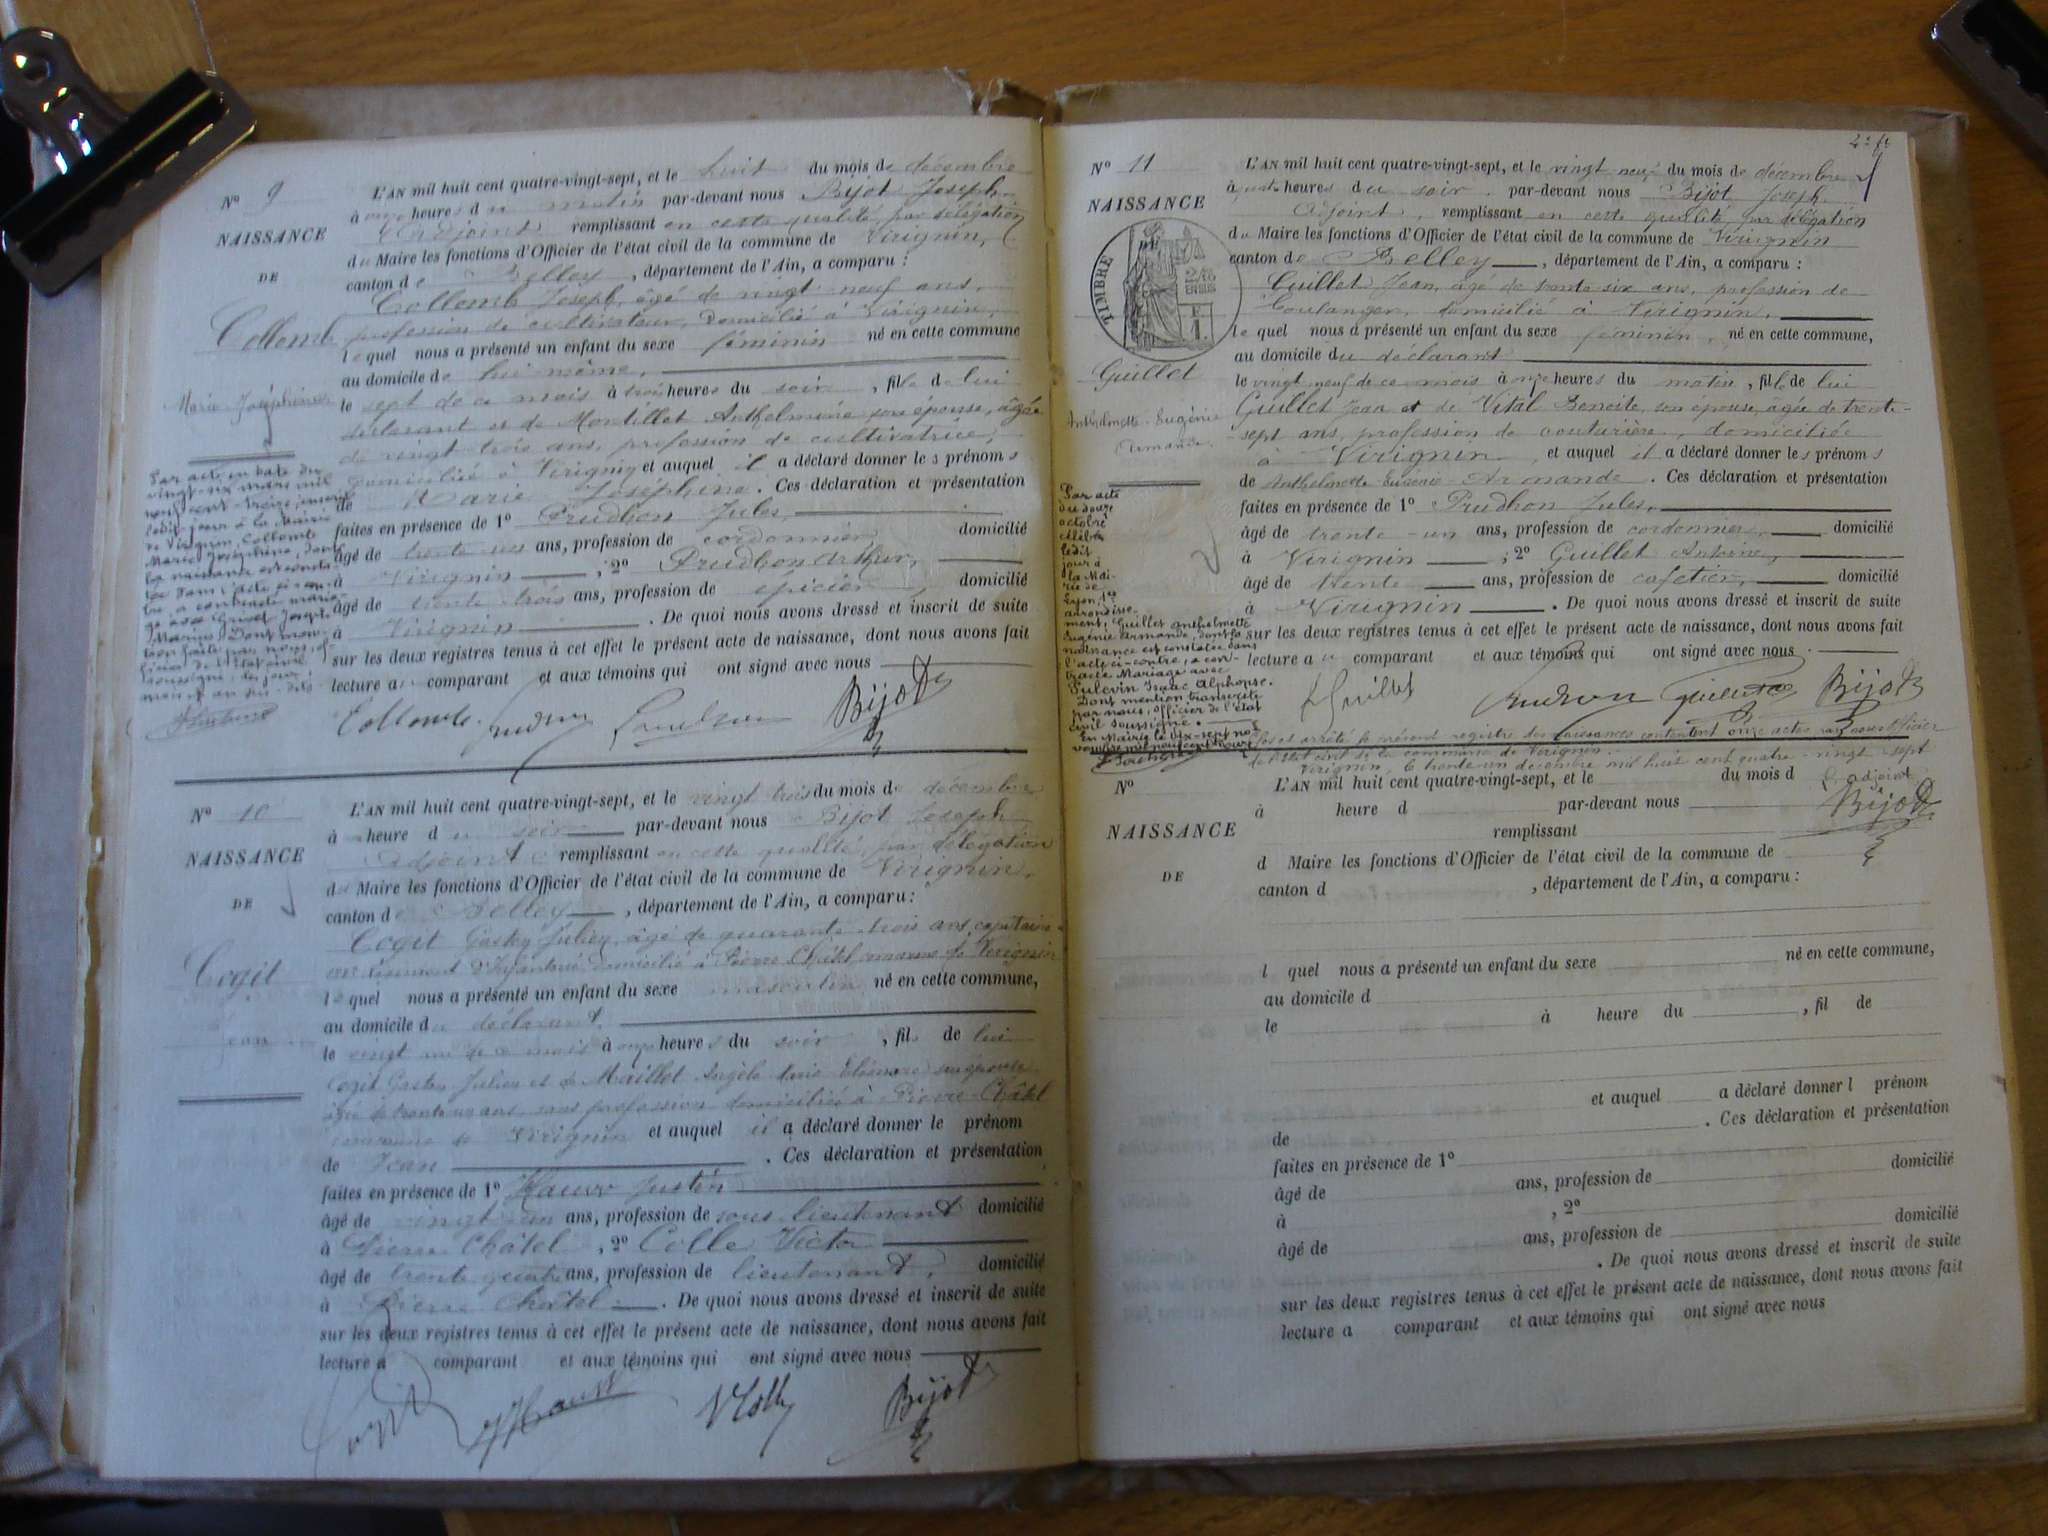 N° 9
NAISSANCE
DE
Collomb
Marie Joséphine
L'AN mil huit cent quatre-vingt-sept, et le huit du mois de décembre
à onze heures du matin par-devant nous Bijot Joseph
Adjoint remplissant en cette qualité, par délégation
du Maire les fonctions d'Officier de l'état civil de la commune de Virignin,
canton de Belley, département de l'Ain, a comparu :
Collomb Joseph, âgé de vingt-neuf ans,
profession de cultivateur, domicilié à Virignin,
lequel nous a présenté un enfant du sexe féminin né en cette commune
au domicile de lui-même,
le sept de ce mois à trois heures du soir, fille de lui
déclarant et de Montillet Anthelmine son épouse, âgée
de vingt trois ans, profession de cultivatrice,
domiciliée à Virignin et auquel il a déclaré donner les prénoms
de Marie Joséphine. Ces déclaration et présentation
faites en présence de 1° Prudhon Jules,
âgé de trente un ans, profession de cordonnier domicilié
à Virignin ; 2° Prudhon Arthur,
âgé de trente-trois ans, profession de épicier, domicilié
à Virignin. De quoi nous avons dressé et inscrit de suite
sur les deux registres tenus à cet effet le présent acte de naissance, dont nous avons fait
lecture au comparant et aux témoins qui ont signé avec nous
Collomb. Bijot
Par acte en date du
vingt-six mars mil
neuf cent-treize, inscrit
ledit jour à la Mairie
de Virignin, Collomb
Marie Joséphine, dont
la naissance est consta-
tée dans l'acte ci-con-
tre, a contracté maria-
ge avec Joseph
Marius. Dont men-
tion faite par nous, of-
ficier de l'état civil
soussigné, les jour
mois et an sus-dits
N° 10
NAISSANCE
DE
Cogit
Jean
L'AN mil huit cent quatre-vingt-sept, et le vingt trois du mois de décembre
à heure du soir par-devant nous Bijot Joseph
Adjoint remplissant en cette qualité, par délégation
du Maire les fonctions d'Officier de l'état civil de la commune de Virignin,
canton de Belley, département de l'Ain, a comparu :
Cogit Gaston Julien, âgé de quarante-trois ans, capitaine
au Régiment d'Infanterie, domicilié à Pierre Châtel commune de Virignin
lequel nous a présenté un enfant du sexe masculin né en cette commune,
au domicile du déclarant.
le vingt un de ce mois à onze heures du soir, fils de lui
Cogit Gaston Julien et de Maillet Angèle Marie Eléonore son épouse
âgée de trente un ans, sans profession domiciliée à Pierre-Châtel
commune de Virignin et auquel il a déclaré donner le prénom
de Jean. Ces déclaration et présentation
faites en présence de 1° Justin
âgé de vingt ans, profession de sous lieutenant domicilié
à Pierre Châtel, 2° Colle Victor
âgé de trente quatre ans, profession de lieutenant, domicilié
à Pierre Châtel. De quoi nous avons dressé et inscrit de suite
sur les deux registres tenus à cet effet le présent acte de naissance, dont nous avons fait
lecture a comparant et aux témoins qui ont signé avec nous
Cogit VColle Bijot
N° 11
NAISSANCE
DE
TIMBRE
Guillet
Anthelmette Eugénie
Armande.
L'AN mil huit cent quatre-vingt-sept, et le vingt neuf du mois de décembre
à quatre heures du soir par-devant nous Bijot Joseph
Adjoint, remplissant en cette qualité, par délégation
du Maire les fonctions d'Officier de l'état civil de la commune de Virignin
canton de Belley, département de l'Ain, a comparu :
Guillet Jean, âgé de trente-six ans, profession de
boulanger, domicilié à Virignin,
lequel nous a présenté un enfant du sexe féminin, né en cette commune,
au domicile du déclarant
le vingt neuf de ce mois à onze heures du matin, fille de lui
Guillet Jean et de Vital Benoite, son épouse, âgée de trente-
sept ans, profession de couturière, domiciliée
à Virignin, et auquel il a déclaré donner les prénoms
de Anthelmette Eugénie Armande. Ces déclaration et présentation
faites en présence de 1° Prudhon Jules,
âgé de trente-un ans, profession de cordonnier, domicilié
à Virignin ; 2° Guillet Antoine,
âgé de trente ans, profession de cafetier, domicilié
à Virignin. De quoi nous avons dressé et inscrit de suite
sur les deux registres tenus à cet effet le présent acte de naissance, dont nous avons fait
lecture au comparant et aux témoins qui ont signé avec nous.
Guillet Prudhon Guillet Bijot
Par acte
du douze
octobre
célébré
ledit
jour à
la Mai-
rie de
Lyon, 1er
arrondisse-
ment, Guillet Anthelmette
Eugénie Armande, dont la
naissance est constatée dans
l'acte ci-contre, a con-
tracté Mariage avec
Pulevin Isaac Alphonse.
Dont mention transcrite
par nous, officier de l'état
civil soussigné.
En Mairie le dix-sept no-
vembre mil neuf cent
Clos et arrêté le présent registre des naissances contenant onze actes par nous Officier
de l'état civil de la commune de Virignin.
Virignin, le trente-un décembre mil huit cent quatre-vingt-sept
L'adjoint
Bijot
N°
NAISSANCE
DE
L'AN mil huit cent quatre-vingt-sept, et le du mois d
à heure d par-devant nous
remplissant
d Maire les fonctions d'Officier de l'état civil de la commune de
canton d , département de l'Ain, a comparu :
l quel nous a présenté un enfant du sexe né en cette commune,
au domicile d
le à heure du , fil de
et auquel a déclaré donner l prénom
de . Ces déclaration et présentation
faites en présence de 1°
âgé de ans, profession de domicilié
à , 2°
âgé de ans, profession de domicilié
à . De quoi nous avons dressé et inscrit de suite
sur les deux registres tenus à cet effet le présent acte de naissance, dont nous avons fait
lecture a comparant et aux témoins qui ont signé avec nous